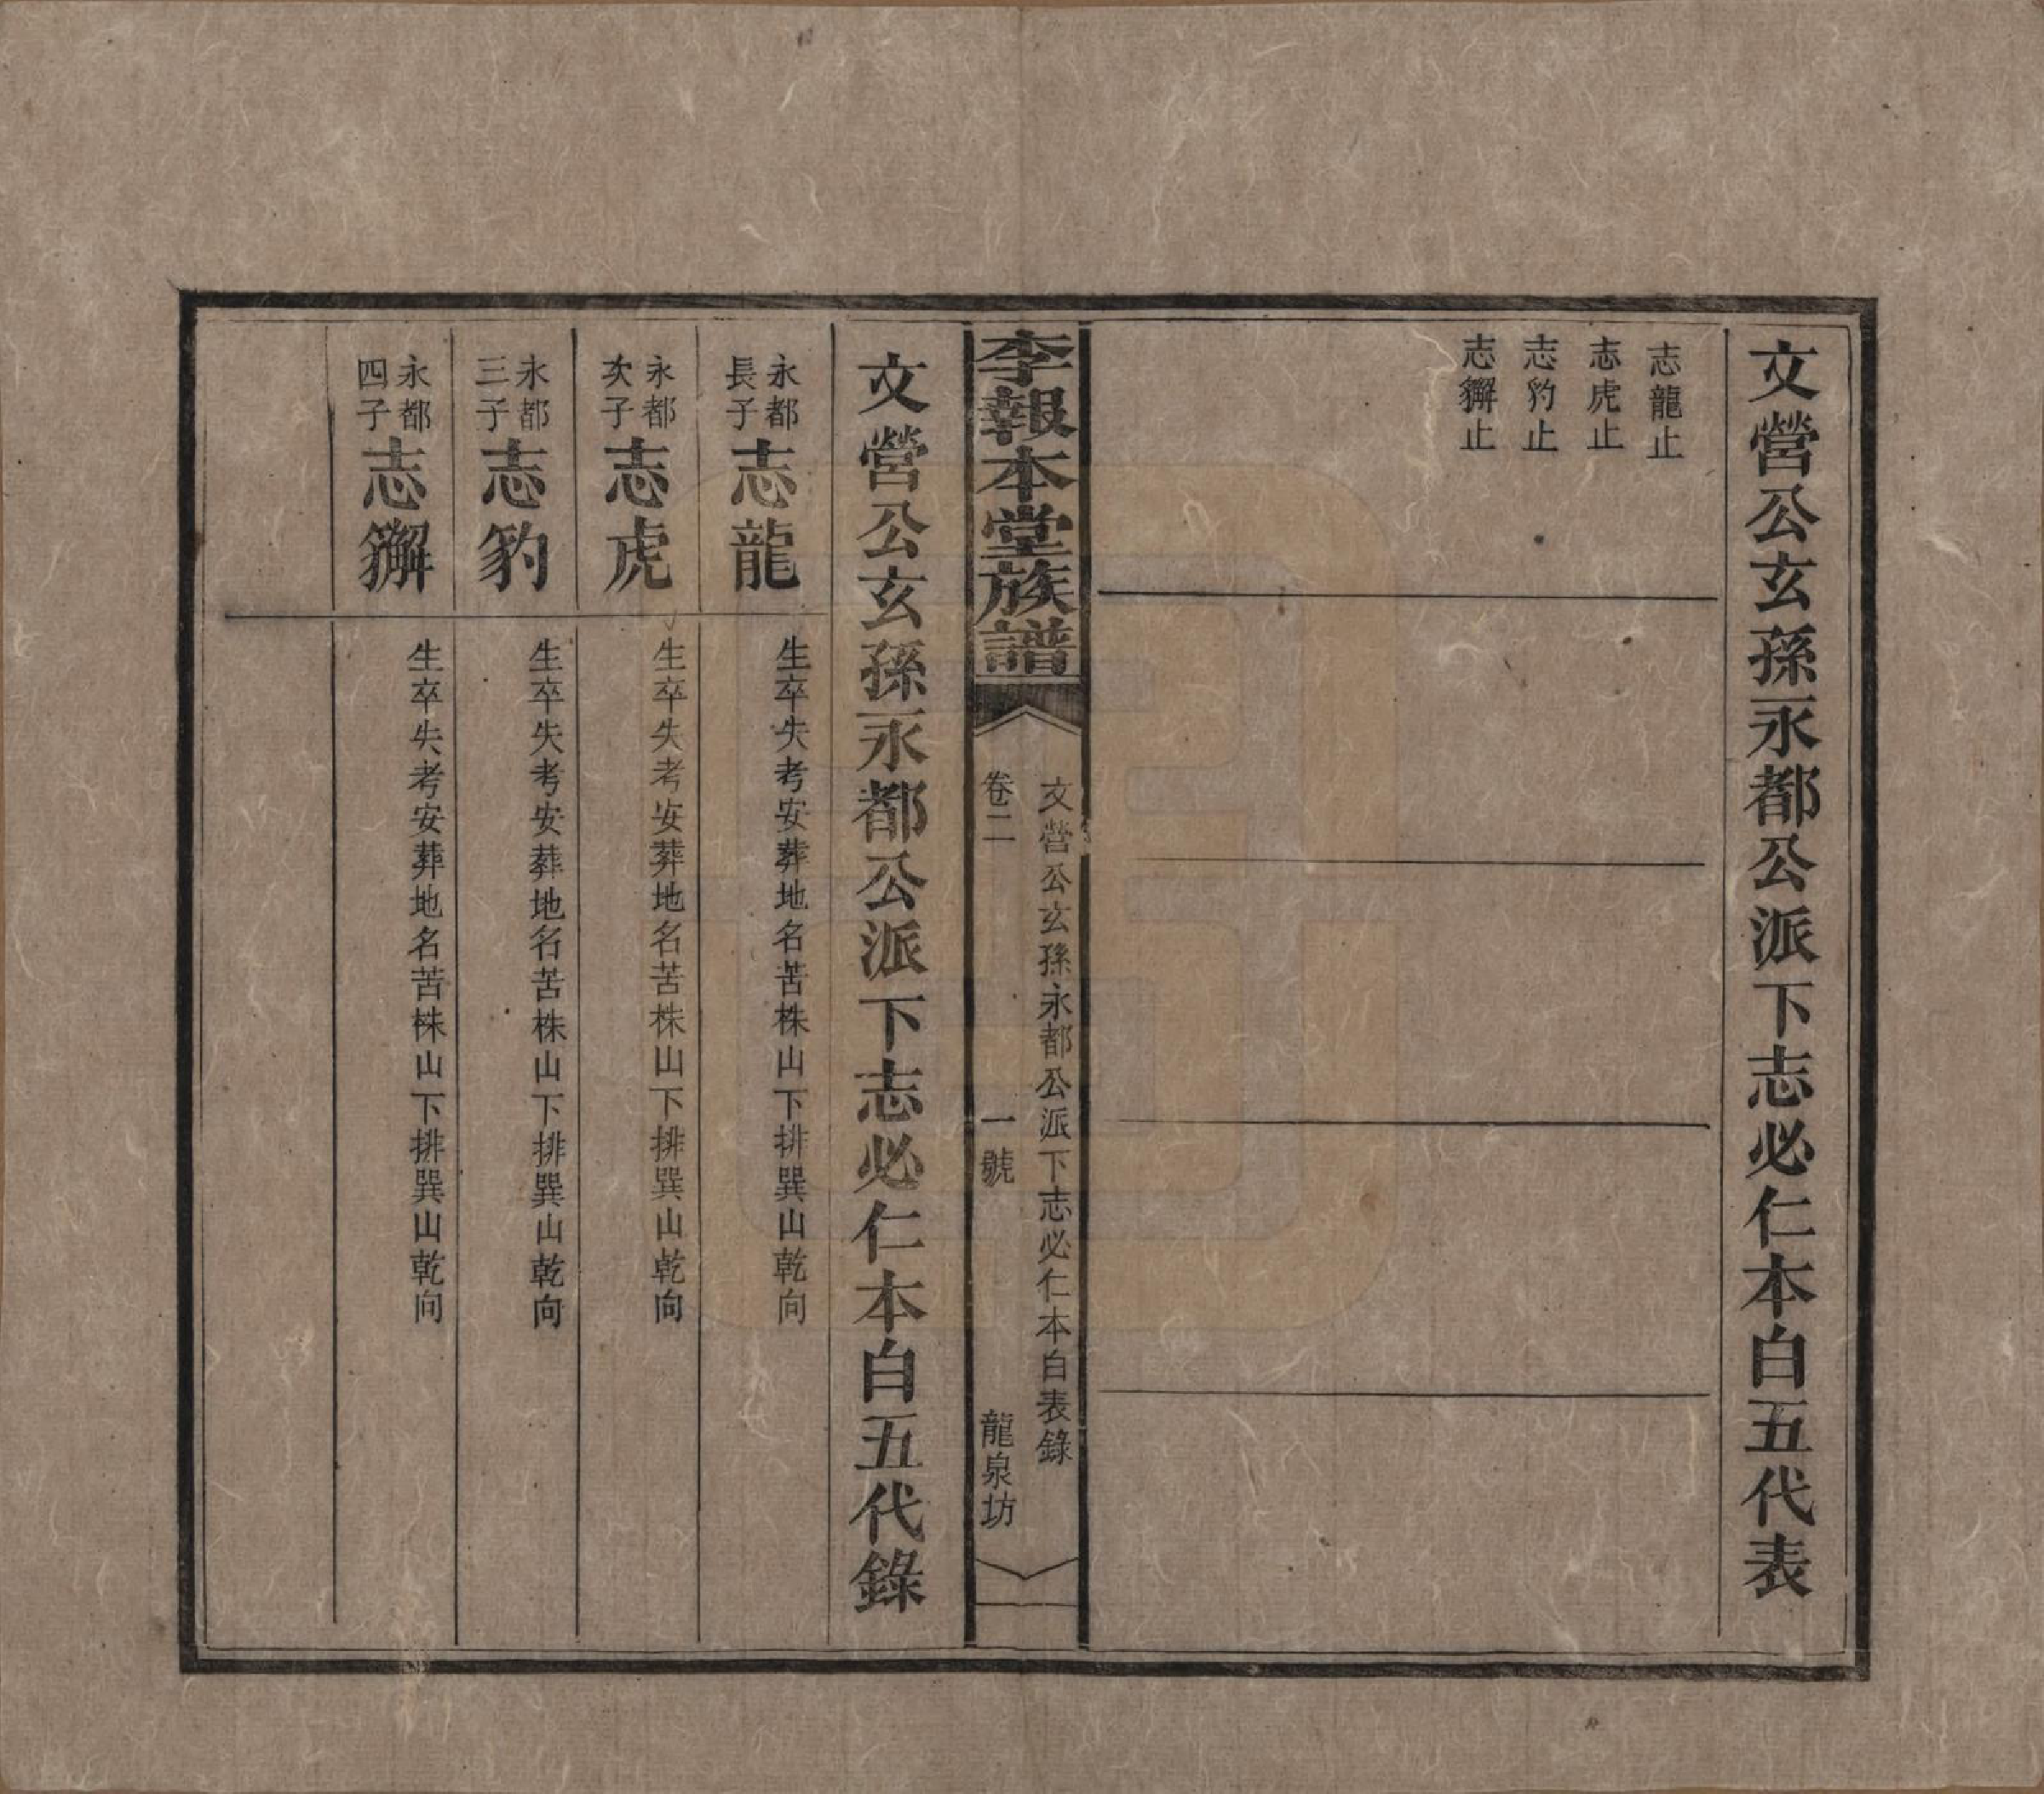 文營公玄孫永都公派下志必仁本白五代表
志龍止
志虎止
志豹止
志獬止
李報本堂族譜
文營公玄孫永都公派下志必仁本白表錄
卷二
一號
龍泉坊
文營公玄孫永都公派下志必仁本白五代錄
永都長子
志龍
生卒失考安葬地名苦株山下排巽山乾向
永都次子
志虎
生卒失考安葬地名苦株山下排巽山乾向
永都三子
志豹
生卒失考安葬地名苦株山下排巽山乾向
永都四子
志獬
生卒失考安葬地名苦株山下排巽山乾向